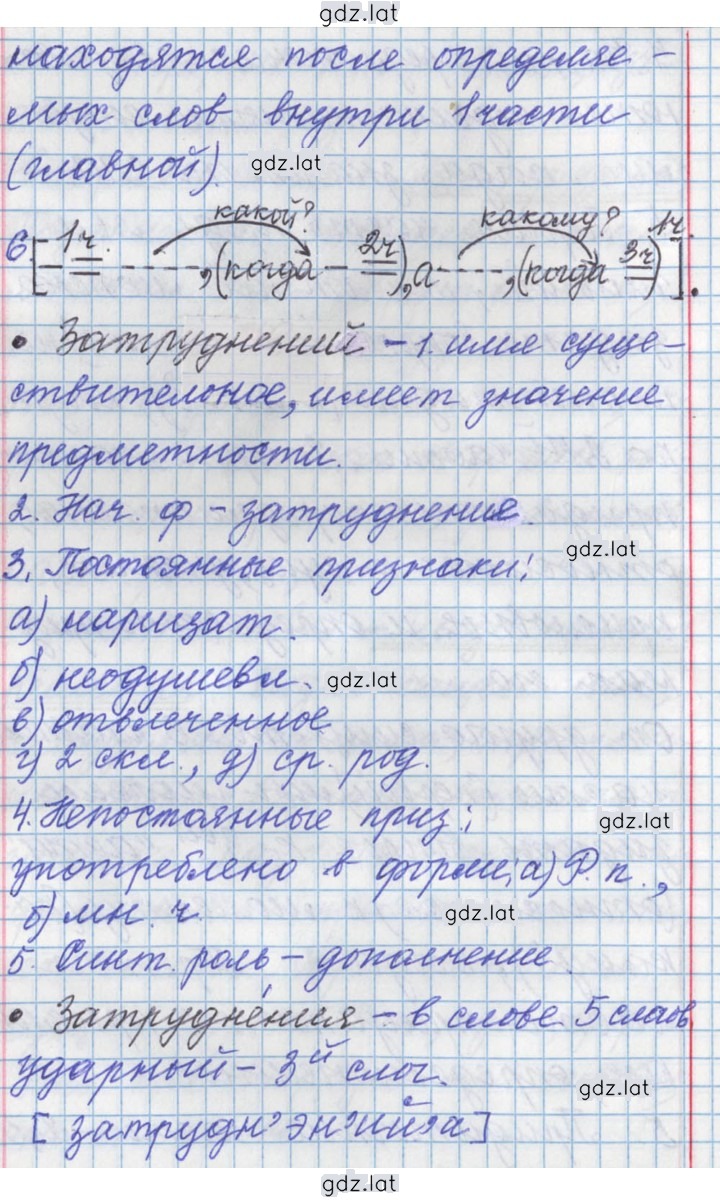 gdz.lat
находятся после определяе-
мых слов внутри 1 части
(главной). gdz.lat
какой? какому?
6. [ 1ч. , (когда 2ч), а , (когда 3ч) 1ч. ].
• Затруднений – 1. имя суще-
ствительное, имеет значение
предметности.
2. Нач. ф – затруднение.
3. Постоянные признаки: gdz.lat
а) нарицат.
б) неодушевл. gdz.lat
в) отвлеченное
г) 2 скл., д) ср. род.
4. Непостоянные приз.: gdz.lat
употреблено в форме: а) Р. п.,
б) мн. ч. gdz.lat
5. Синт. роль – дополнение.
• Затрудне́ния – в слове 5 слогов,
ударный – 3й слог. gdz.lat
[затрудн’эн’ий’а]
gdz.lat